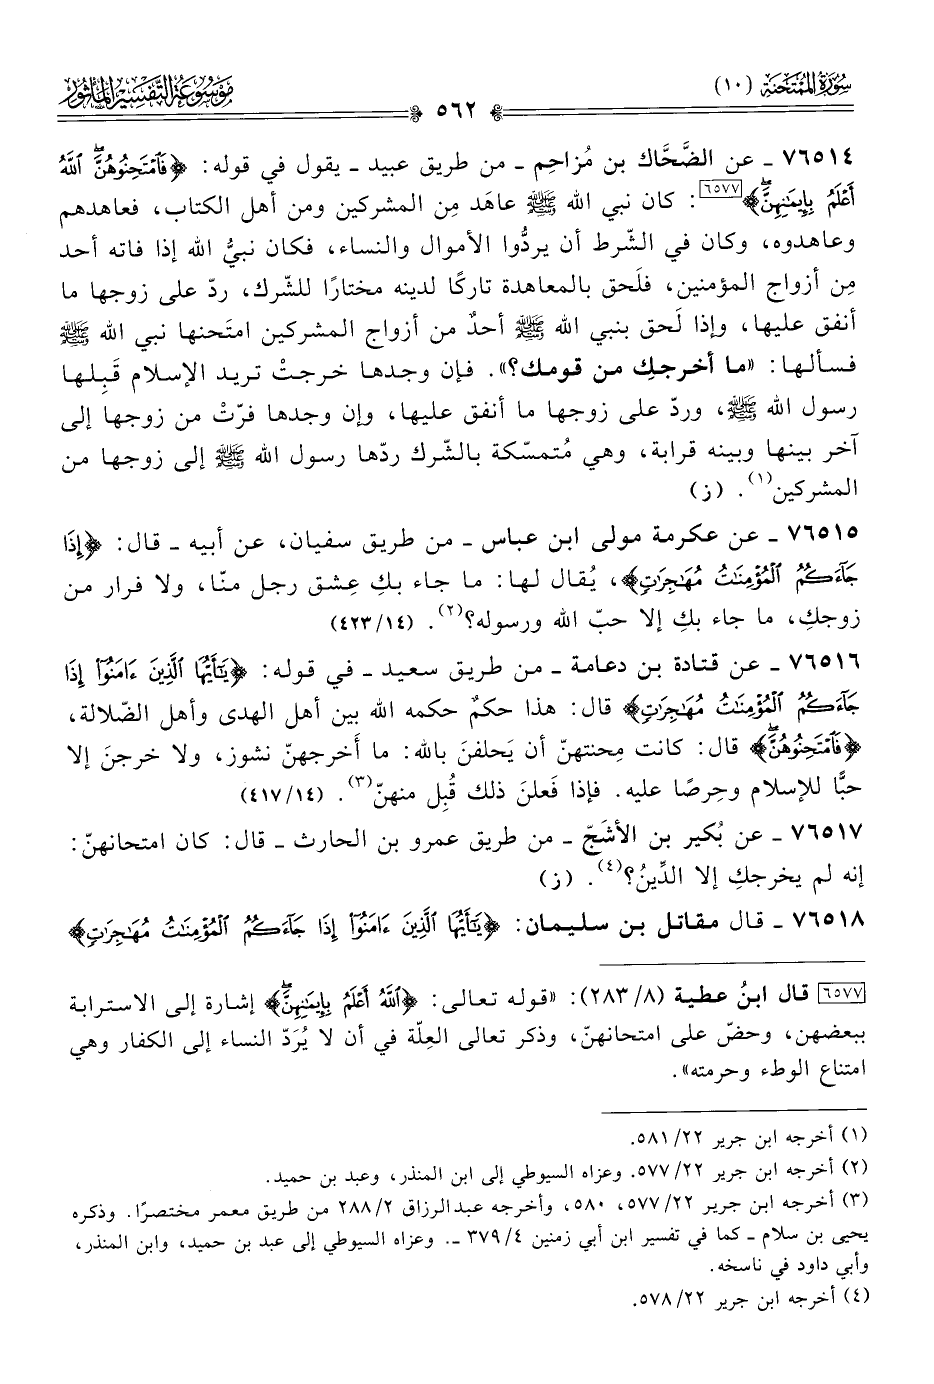 سُورَةُ المُمْتَحنَة (١٠)
٥٦٢
مَوْسُوعَة التَّفْسِيرِ المَأْثُور
٧٦٥١٤ ـ عن الضَّحَّاك بن مُزاحِم ـ من طريق عبيد ـ يقول في قوله: ﴿فَٱمْتَحِنُوهُنَّۖ ٱللَّهُ
أَعْلَمُ بِإِيمَٰنِهِنَّۖ﴾[٦٥٧٧]: كان نبي الله ﷺ عاهَد مِن المشركين ومن أهل الكتاب، فعاهدهم
وعاهدوه، وكان في الشّرط أن يردُّوا الأموال والنساء، فكان نبيُّ الله إذا فاته أحد
مِن أزواج المؤمنين، فلَحق بالمعاهدة تاركًا لدينه مختارًا للشّرك، ردّ على زوجها ما
أنفق عليها، وإذا لَحق بنبي الله ﷺ أحدٌ من أزواج المشركين امتَحنها نبي الله ﷺ
فسألها: «ما أخرجكِ من قومك؟». فإن وجدها خرجتْ تريد الإسلام قَبِلها
رسول الله ﷺ، وردّ على زوجها ما أنفق عليها، وإن وجدها فرّتْ من زوجها إلى
آخر بينها وبينه قرابة، وهي مُتمسّكة بالشّرك ردّها رسول الله ﷺ إلى زوجها من
المشركين(١). (ز)
٧٦٥١٥ ـ عن عكرمة مولى ابن عباس ـ من طريق سفيان، عن أبيه ـ قال: ﴿إِذَا
جَآءَكُمُ ٱلْمُؤْمِنَٰتُ مُهَٰجِرَٰتٍ﴾، يُقال لها: ما جاء بكِ عِشق رجل منّا، ولا فرار من
زوجكِ، ما جاء بكِ إلا حبّ الله ورسوله؟(٢). (١٤/٤٢٣)
٧٦٥١٦ ـ عن قتادة بن دعامة ـ من طريق سعيد ـ في قوله: ﴿يَٰٓأَيُّهَا ٱلَّذِينَ ءَامَنُوٓا۟ إِذَا
جَآءَكُمُ ٱلْمُؤْمِنَٰتُ مُهَٰجِرَٰتٍ﴾ قال: هذا حكمٌ حكمه الله بين أهل الهدى وأهل الضّلالة،
﴿فَٱمْتَحِنُوهُنَّۖ﴾ قال: كانت مِحنتهنّ أن يَحلفنَ بالله: ما أَخرجهنّ نشوز، ولا خرجنَ إلا
حبًّا للإسلام وحِرصًا عليه. فإذا فَعلنَ ذلك قُبِل منهنّ(٣). (١٤/٤١٧)
٧٦٥١٧ ـ عن بُكير بن الأشَجّ ـ من طريق عمرو بن الحارث ـ قال: كان امتحانهنّ:
إنه لم يخرجكِ إلا الدِّينُ؟(٤). (ز)
٧٦٥١٨ ـ قال مقاتل بن سليمان: ﴿يَٰٓأَيُّهَا ٱلَّذِينَ ءَامَنُوٓا۟ إِذَا جَآءَكُمُ ٱلْمُؤْمِنَٰتُ مُهَٰجِرَٰتٍ﴾
[٦٥٧٧] قال ابنُ عطية (٨/٢٨٣): «قوله تعالى: ﴿ٱللَّهُ أَعْلَمُ بِإِيمَٰنِهِنَّۖ﴾ إشارة إلى الاسترابة
ببعضهن، وحضّ على امتحانهنّ، وذكر تعالى العِلّة في أن لا يُرَدّ النساء إلى الكفار وهي
امتناع الوطء وحرمته».
(١) أخرجه ابن جرير ٢٢/٥٨١.
(٢) أخرجه ابن جرير ٢٢/٥٧٧. وعزاه السيوطي إلى ابن المنذر، وعبد بن حميد.
(٣) أخرجه ابن جرير ٢٢/٥٧٧، ٥٨٠، وأخرجه عبدالرزاق ٢/٢٨٨ من طريق معمر مختصرًا. وذكره
يحيى بن سلام ـ كما في تفسير ابن أبي زمنين ٤/٣٧٩ ـ. وعزاه السيوطي إلى عبد بن حميد، وابن المنذر،
وأبي داود في ناسخه.
(٤) أخرجه ابن جرير ٢٢/٥٧٨.